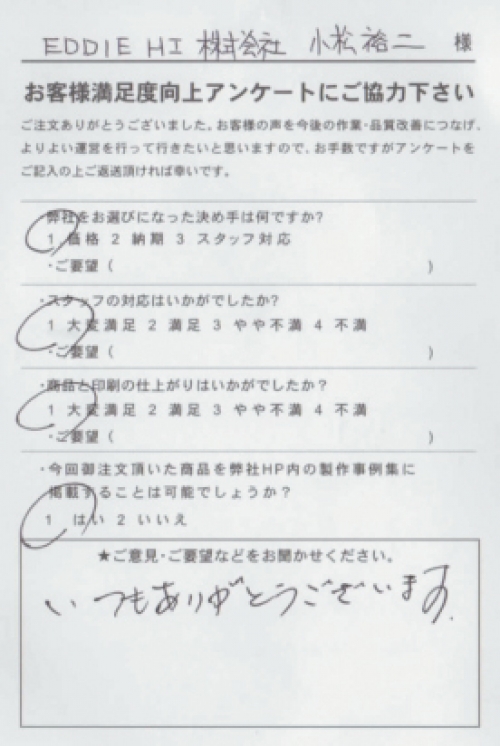 EDDIE HI 株式会社 小松裕二 様
お客様満足度向上アンケートにご協力下さい
ご注文ありがとうございました。お客様の声を今後の作業・品質改善につなげ、
よりよい運営を行って行きたいと思いますので、お手数ですがアンケートを
ご記入の上ご返送頂ければ幸いです。
弊社をお選びになった決め手は何ですか?
1 価格 2 納期 3 スタッフ対応
・ご要望 ( )
・スタッフの対応はいかがでしたか?
1 大変満足 2 満足 3 やや不満 4 不満
・ご要望 ( )
・商品と印刷の仕上がりはいかがでしたか?
1 大変満足 2 満足 3 やや不満 4 不満
・ご要望 ( )
・今回御注文頂いた商品を弊社HP内の製作事例集に
掲載することは可能でしょうか?
1 はい 2 いいえ
★ご意見・ご要望などをお聞かせください。
いつもありがとうございます.